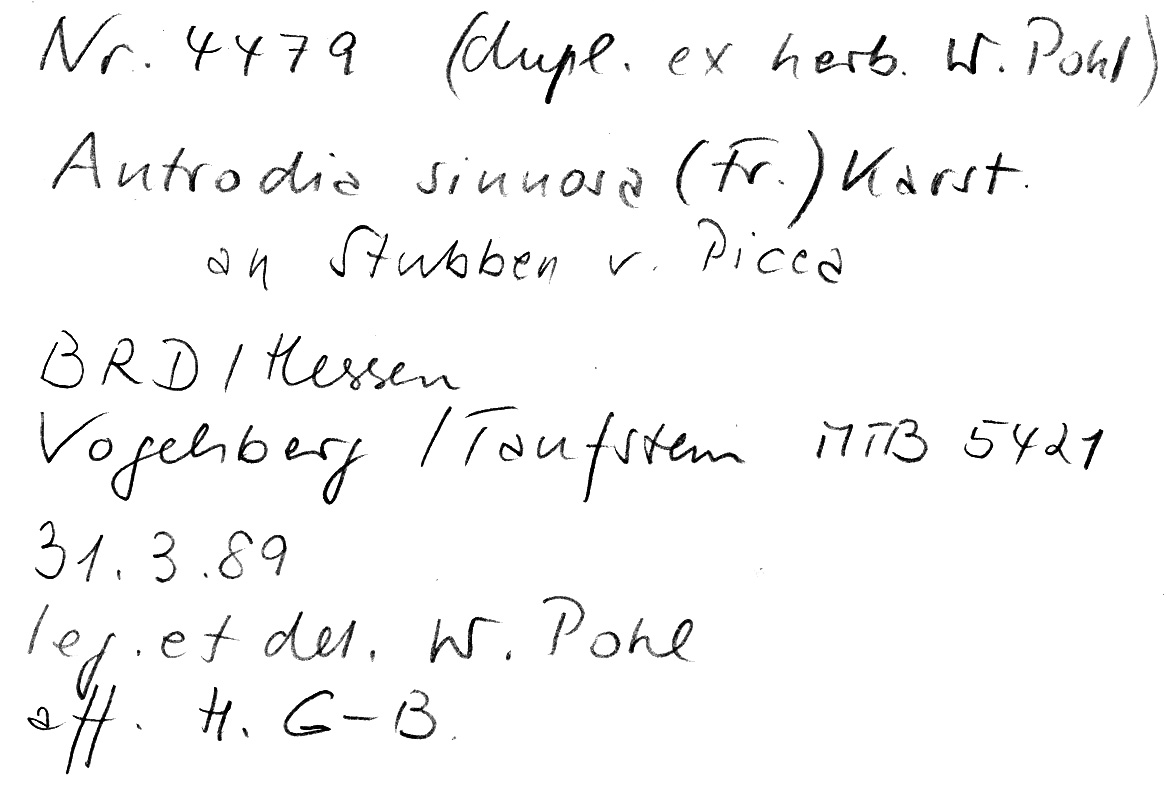 Nr. 4479 (dupl. ex herb. W. Pohl)
Antrodia sinuosa (Fr.) Karst.
an Stubben v. Picea
BRD / Hessen
Vogelsberg / Taufstein MTB 5421
31.3.89
leg. et det. W. Pohl
aff. H. G-B.